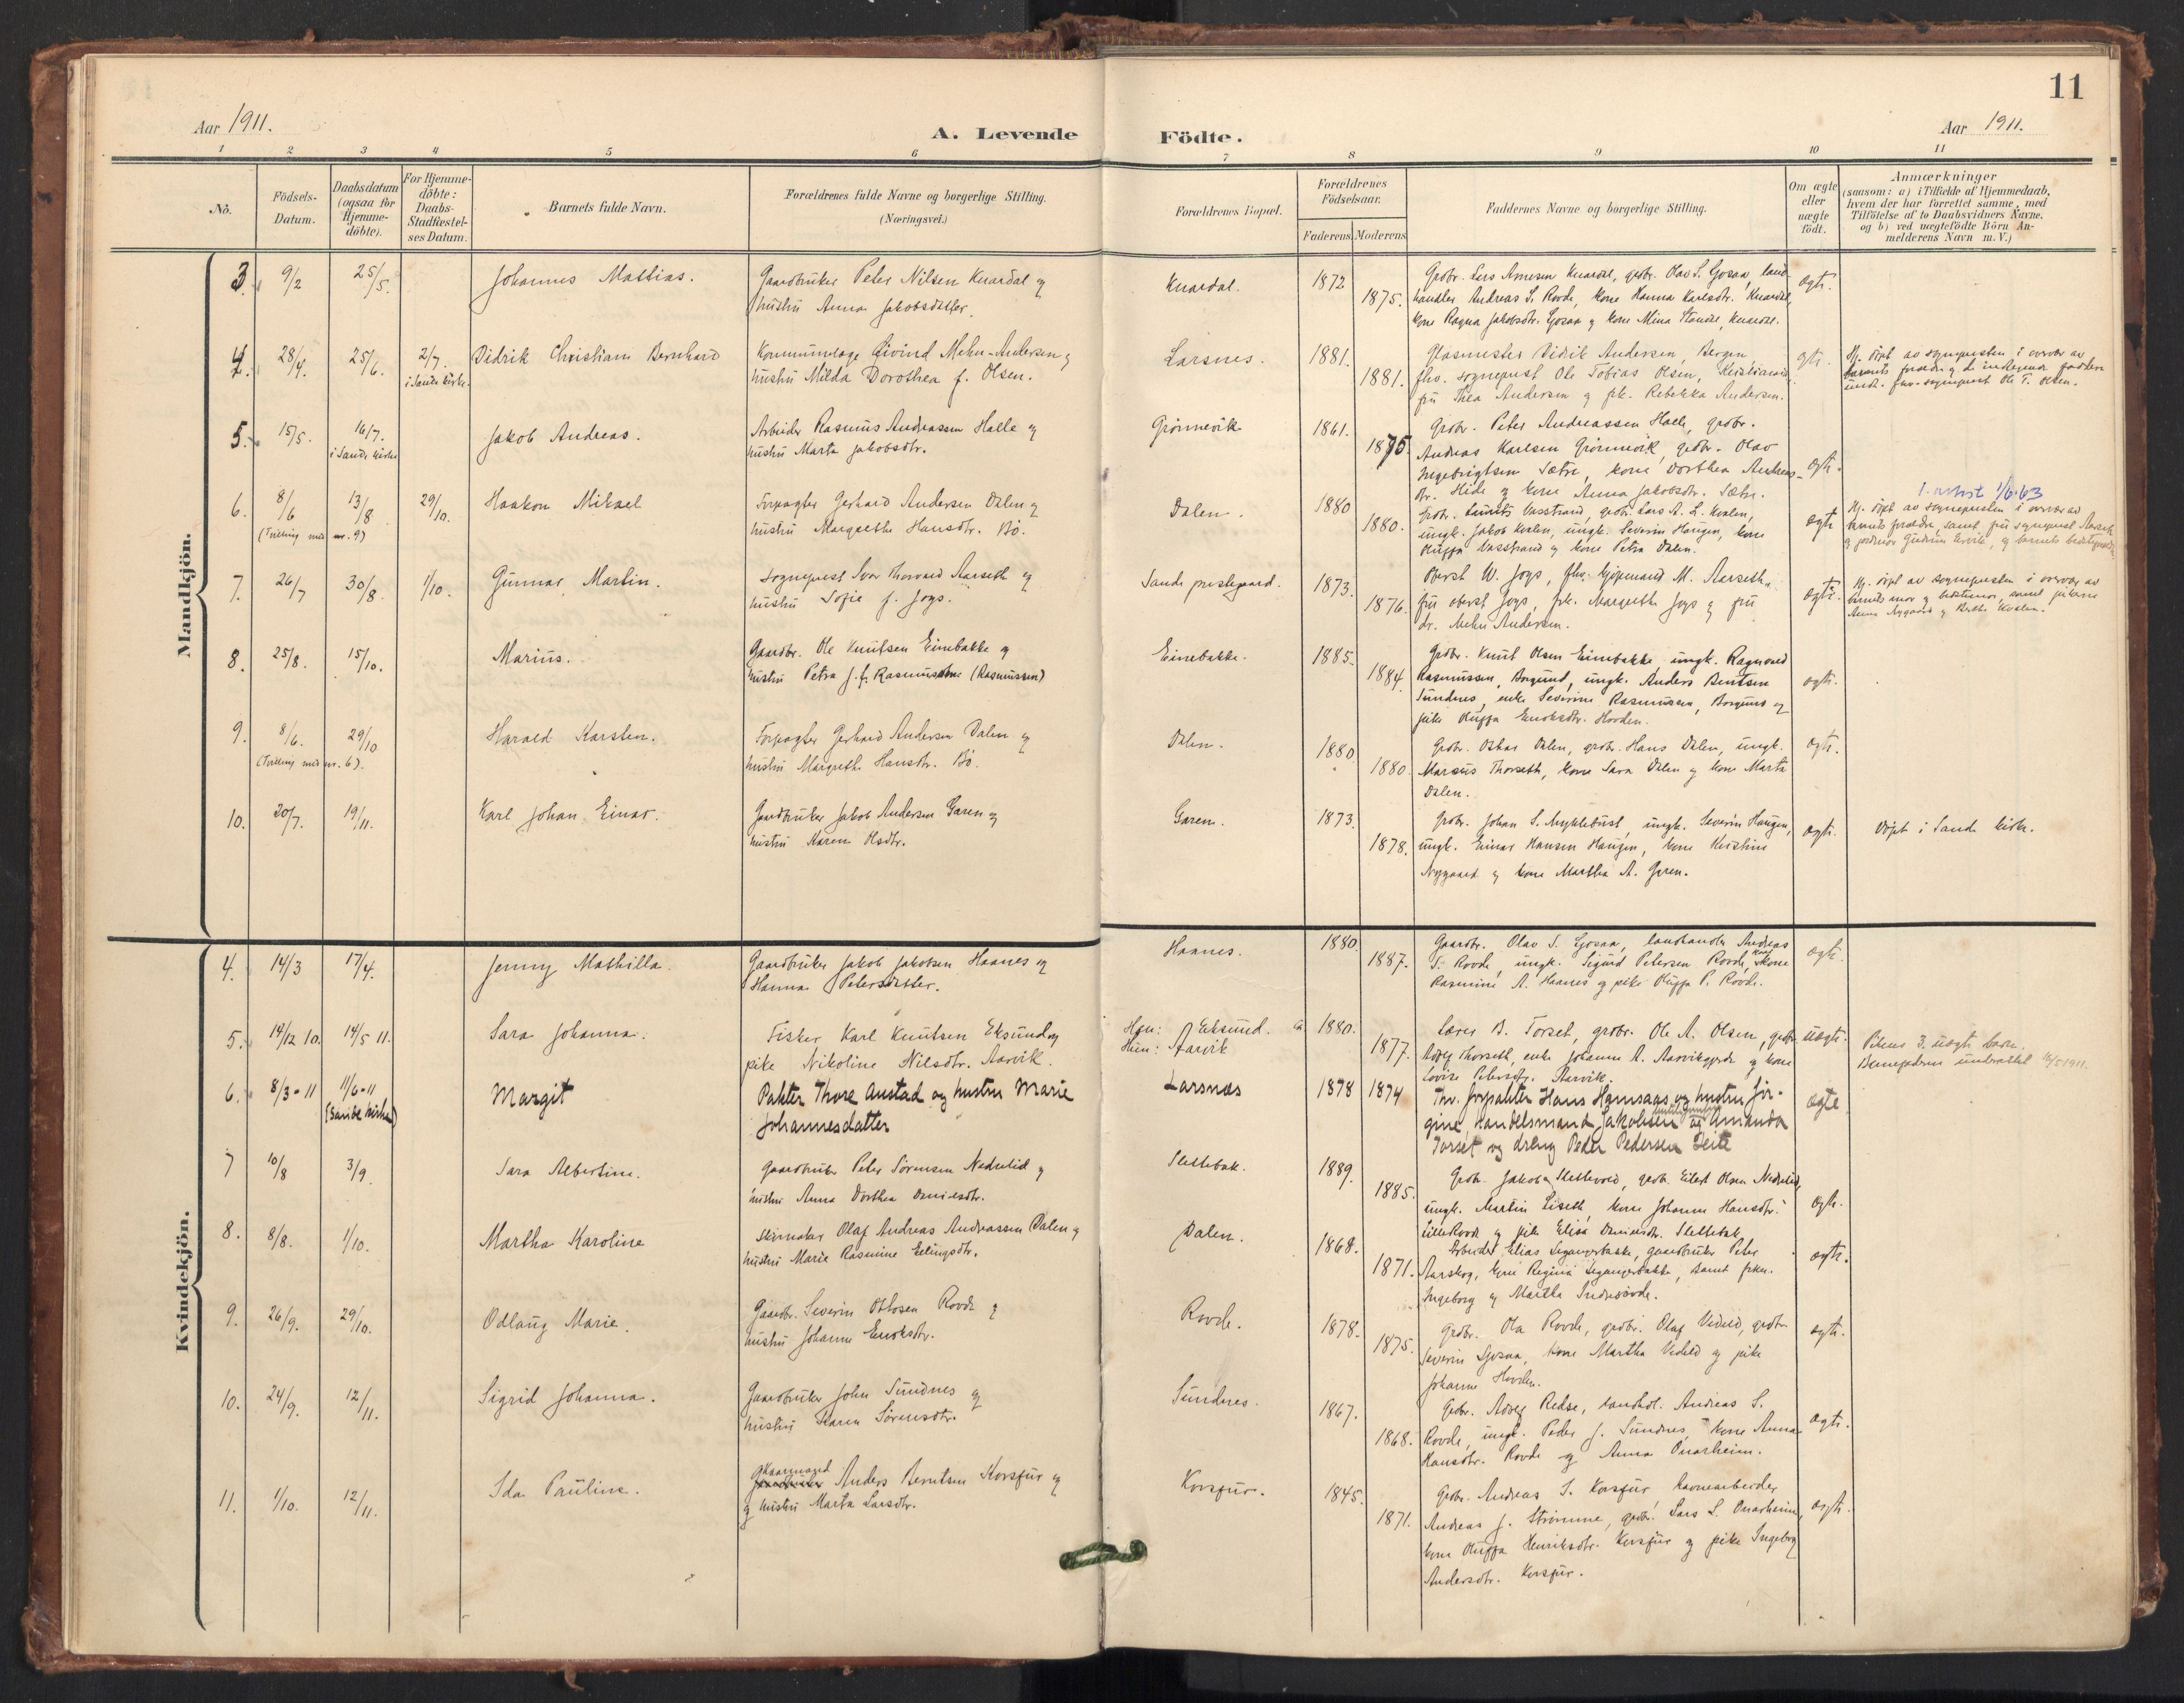 11
Aar 1911.
A. Levende Födte.
Aar 1911.
1 2 3 4 5 6 7 8 9 10 11
No.
Födsels-Datum.
Daabsdatum (ogsaa for Hjemme-döbte).
For Hjemme-döbte: Daabs-Stadfæstel-ses Datum.
Barnets fulde Navn.
Forældrenes fulde Navne og borgerlige Stilling. (Næringsvei.)
Forældrenes Bopæl.
Forældrenes Födselsaar.
Faderens. Moderens.
Faddernes Navne og borgerlige Stilling.
Om ægte eller uægte födt.
Anmærkninger
(saasom: a) i Tilfælde af Hjemmedaab, hvem der har forrettet samme, med Tilföielse af to Daabsvidners Navne, og b) ved uægtefödte Börn Anmelderens Navn m. V.)
Mandkjön.
3. 9/2 25/5. Johannes Mathias.
Gaardbruker Peter Nilsen Knardal og
hustru Anna Jakobsdatter.
Knardal. 1872 1875.
Grdbr. Lars Arnesen Knardal, grdbr. Olav S. Gjosaa, land-
handler Andreas S. Rovde, kone Hanna Karlsdtr. Knardal,
kone Ragna Jakobsdtr. Gjosaa og kone Mina Standal, Knardal.
ægte.
4. 28/4. 25/6. 2/7. i Sande kirke. Didrik Christian Bernhard
Kommunelæge Eivind Mehn-Andersen og
hustru Milda Dorothea f. Olsen.
Larsnes. 1881. 1881.
Glasmester Didrik Andersen, Bergen,
fhv. sogneprest Ole Tobias Olsen, Kristiania,
fru Thea Andersen og frk. Rebekka Andersen.
ægte.
Hj. döpt av sognepresten i overvær av
barnets forældre og de indtegnede faddere
undt. fhv. sogneprest Ole T. Olsen.
5. 15/5. 16/7. i Sande kirke Jakob Andreas.
Arbeider Rasmus Andreassen Halle og
hustru Marta Jakobsdtr.
Grönnevik 1861. 1875.
Grdbr. Peter Andreassen Halle, grdbr.
Andreas Karlsen Grönnevik, grdbr. Olav
Ingebrigtsen Sætre, kone Dorthea Andreas-
dtr. Hide og kone Anna Jakobsdtr. Sætre.
ægte.
6. 8/6 (Tvilling med nr. 9) 13/8 29/10. Haakon Mikael
Forpagter Gerhard Andersen Dalen og
hustru Margrethe Hansdtr. Bö.
Dalen. 1880 1880.
Grdbr. Laurits Vasstrand, grdbr. Lars A. L. Kvalen,
ungk. Jakob Kvalen, ungk. Severin Haugen, kone
Oluffa Vasstrand og kone Petra Dalen.
ægte
1. attest 1/6-63
Hj. döpt av sognepresten i overvær av
barnets forældre, samt fru sogneprest Aarseth
og jordmor Gudrun Ervik, og barnets bedstemor
7. 26/7 30/8. 1/10. Gunnar Martin.
Sogneprest Ivar Thorvald Aarseth og
hustru Sofie f. Joys.
Sande prestegaard. 1873. 1876.
Oberst W. Joys, fhv. kjöpmand M. Aarseth,
fru oberst Joys, frk. Margrethe Joys og fru
dr. Mehn Andersen.
ægte.
Hj. döpt av sognepresten i overvær av
barnets mor og bedstemor, samt pikerne
Anna Nygaard og Berthe Kvalen.
8. 25/8. 15/10. Marius.
Gaardbr. Ole Knutsen Einebakke og
hustru Petra J. f. Rasmusdtr. (Rasmussen)
Einebakke. 1885. 1884.
Grdbr. Knut Olsen Einebakke, ungk. Ragnvald
Rasmussen, Borgund, ungk. Anders Bentsen
Sundnes, enke Severine Rasmussen, Borgund og
pike Oluffa Enoksdtr. Hovden.
ægte.
9. 8/6. (Tvilling med nr. 6). 29/10 Harald Karsten.
Forpagter Gerhard Andersen Dalen og
hustru Margrethe Hansdtr. Bö.
Dalen. 1880. 1880.
Grdbr. Oskar Dalen, grdbr. Hans Dalen, ungk.
Marius Thorseth, kone Sara Dalen og kone Marta
Dalen.
ægte.
10. 20/7. 19/11. Karl Johan Einar.
Gaardbruker Jakob Andersen Garen og
hustru Karen Olsdtr.
Garen. 1873. 1878.
Grdbr. Johan S. Myklebust, ungk. Severin Haugen,
ungk. Einar Hansen Haugen, kone Kristine
Nygaard og kone Martha A. Garen.
ægte. Döpt i Sande kirke.
Kvindekjön.
4. 14/3 17/4. Jenny Mathilla.
Gaardbruker Jakob Jakobsen Haanes og
Hanna Petersdatter.
Haanes. 1880. 1887.
Gaardbr. Olav S. Gjosaa, landhandler Andreas
S. Rovde, ungk. Sigurd Petersen Rovde, kone
Rasmine A. Haanes og pike Oluffa P. Rovde.
ægte.
5. 14/12 10. 14/5 11. Sara Johanna.
Fisker Karl Knutsen Eksund og
pike Nikoline Nilsdtr. Aarvik.
Han: Eksund.
Hun: Aarvik
1880. 1877.
Lærer B. Torset, grdbr. Ole A. Olsen, grdbr.
Adolf Thorseth, enke Johanne A. Aarviksgjerde og kone
Lovise Petersdtr. Aarvik.
uægte.
Pikens 3. uægte barn.
Barnefaderen underrettet 16/5 1911.
6. 8/3-11 11/6-11 (Sande kirke) Margit
Pakter Thore Austad og hustru Marie
Johannesdatter
Larsnæs 1878 1874
Tho. forpakter Hans Hamsaas og hustru Jör-
gine, Handelsmand Jakobsen og Amanda
Torset og dreng Peder Pedersen Seite
ægte
7 10/8 3/9. Sara Albertine.
Gaardbruker Peter Sörensen Nedrelid og
hustru Anna Dorthea Danielsdtr.
Slettebak. 1889. 1885.
Grdbr. Jakob Slettevold, grdbr. Eilert Olsen Nedrelid,
ungk. Martin Liseth, kone Johanne Hansdtr.
LilleRovde og pike Elisa Danielsdtr. Slettebak
ægte.
8. 8/8. 1/10. Martha Karoline
Skomaker Olaf Andreas Andreassen Dalen og
hustru Marie Rasmine Erlingsdtr.
Dalen. 1868. 1871.
Arbeider Elias Leganger­bakke, gaardbruker Peter
Aarskog, kone Regina Legangerbakke, samt frkn.
Ingeborg og Martha Indresövde.
ægte.
9. 26/9. 29/10. Odlaug Marie.
Gaardbr. Severin Ottosen Rovde og
hustru Johanne Enoksdtr.
Rovde. 1878. 1875.
Grdbr. Ola Rovde, grdbr. Olaf Vedeld, grdbr.
Severin Gjosaa, kone Martha Vedeld og pike
Johanne Hovden.
ægte.
10. 24/9. 12/11. Sigrid Johanna.
Gaardbruker John Sundnes og
hustru Karen Sörensdtr.
Sundnes. 1867. 1868.
Grdbr. Adolf Redse, landhdl. Andreas S.
Rovde, ungk. Peder J. Sundnes, kone Anna
Hansdtr. Rovde og Anna Onarheim.
ægte.
11. 1/10. 12/11. Ida Pauline.
Kaarmand Anders Berntsen Korsfur og
og hustru Marta Larsdtr.
Korsfur. 1845. 1871.
Grdbr. Andreas S. Korsfur havnearbeider
Andreas J. Strömme, grdbr. Lars L. Onarheim,
kone Oluffa Henriksdtr. Korsfur og pike Ingeborg
Andersdtr. Korsfur.
ægte.